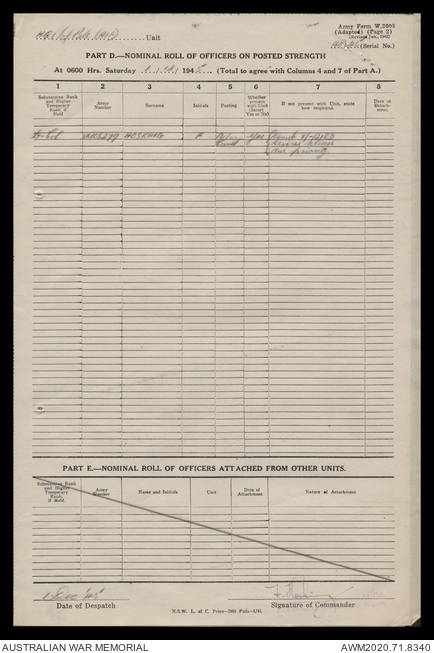 Army Form W.3008
(Adapted) (Page 2)
(Revised Jan., 1945)
Unit
(Serial No.)
PART D.—NOMINAL ROLL OF OFFICERS ON POSTED STRENGTH
At 0600 Hrs. Saturday 1 / 12 / 1945 (Total to agree with Columns 4 and 7 of Part A.)
1 2 3 4 5 6 7 8
Substantive Rank and Higher Temporary Rank if Held
Army Number
Surname
Initials
Posting
Whether present with Unit (Insert Yes or No)
If not present with Unit, state how employed.
Date of Attachment
Lt-Col HOSKING F Yes
PART E.—NOMINAL ROLL OF OFFICERS ATTACHED FROM OTHER UNITS.
Substantive Rank and Higher Temporary Rank, if Held.
Army Number
Name and Initials
Unit
Date of Attachment
Nature of Attachment
1 Dec 45
F. Hosking
Date of Despatch
Signature of Commander
N.S.W. L. of C. Press
AUSTRALIAN WAR MEMORIAL
AWM2020.71.8340